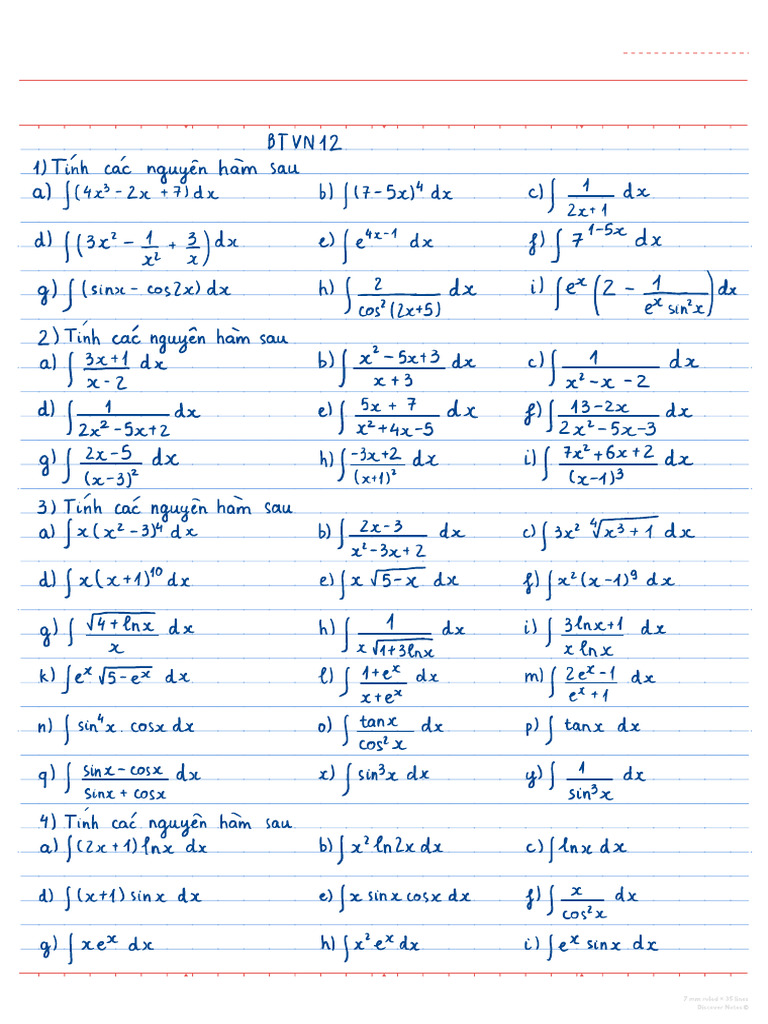 BTVN12
1) Tính các nguyên hàm sau
a) ∫(4x³ - 2x + 7)dx b) ∫(7-5x)⁴ dx c) ∫ 1/(2x+1) dx
d) ∫(3x² - 1/x² + 3/x)dx e) ∫e^(4x-1) dx f) ∫7^(1-5x) dx
g) ∫(sinx - cos2x)dx h) ∫ 2/(cos²(2x+5)) dx i) ∫e^x (2 - 1/(e^x sin²x))dx
2) Tính các nguyên hàm sau
a) ∫ (3x+1)/(x-2) dx b) ∫ (x²-5x+3)/(x+3) dx c) ∫ 1/(x²-x-2) dx
d) ∫ 1/(2x²-5x+2) dx e) ∫ (5x+7)/(x²+4x-5) dx f) ∫ (13-2x)/(2x²-5x-3) dx
g) ∫ (2x-5)/(x-3)² dx h) ∫ (-3x+2)/(x+1)² dx i) ∫ (7x²+6x+2)/(x-1)³ dx
3) Tính các nguyên hàm sau
a) ∫x(x²-3)⁴dx b) ∫ (2x-3)/(x²-3x+2) dx c) ∫3x² ⁴√(x³+1) dx
d) ∫x(x+1)¹⁰dx e) ∫x√(5-x) dx f) ∫x²(x-1)⁹ dx
g) ∫ √(4+lnx)/x dx h) ∫ 1/(x√(1+3lnx)) dx i) ∫ (3lnx+1)/(x lnx) dx
k) ∫e^x √(5-e^x) dx l) ∫ (1+e^x)/(x+e^x) dx m) ∫ (2e^x-1)/(e^x+1) dx
n) ∫sin⁴x.cosx dx o) ∫ tanx/cos²x dx p) ∫tanx dx
q) ∫ (sinx-cosx)/(sinx+cosx) dx x) ∫sin³x dx y) ∫ 1/sin³x dx
4) Tính các nguyên hàm sau
a) ∫(2x+1)lnx dx b) ∫x²ln2x dx c) ∫lnx dx
d) ∫(x+1)sinx dx e) ∫x sinx cosx dx f) ∫ x/cos²x dx
g) ∫xe^x dx h) ∫x²e^x dx i) ∫e^x sinx dx